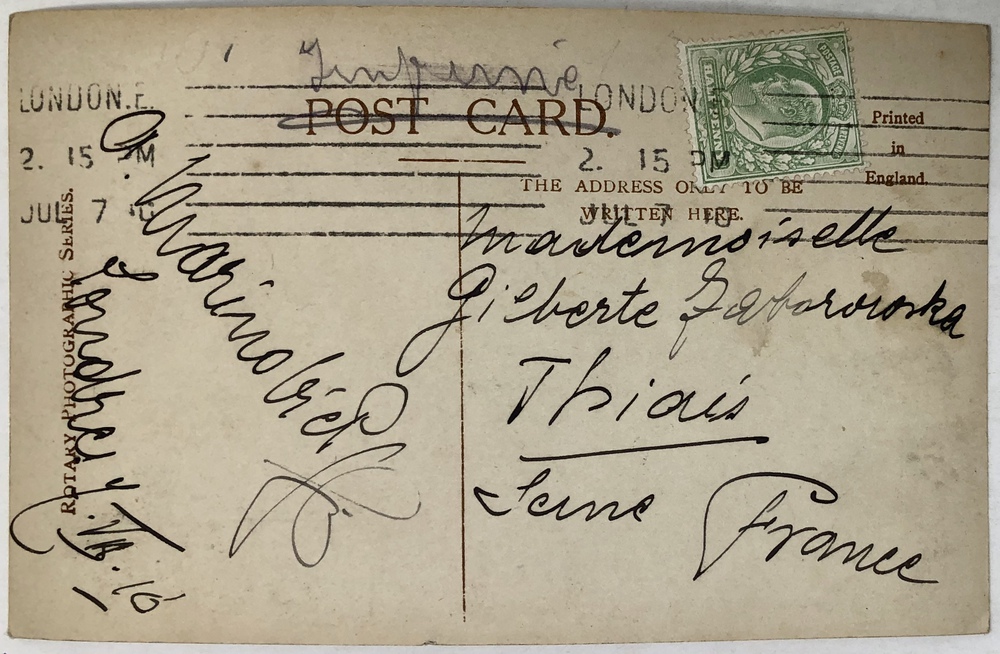 Imprimé
LONDON.E.
2. 15 PM
JUL 7 10
LONDON
2. 15 PM
JUL 7 10
POST CARD.
Printed
in
England.
THE ADDRESS ONLY TO BE
WRITTEN HERE.
ROTARY PHOTOGRAPHIC SERIES.
Londres 7. VII. 10
Mademoiselle
Gilberte Zaborowska
Thiais
Seine France